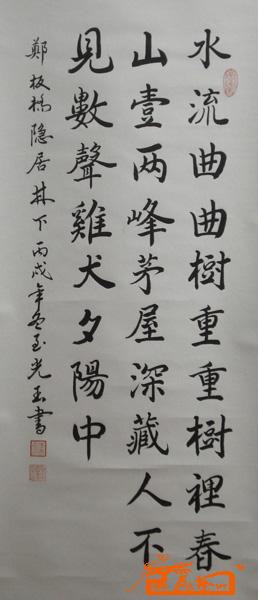 水流曲曲樹重重樹裡春
山壹两峰茅屋深藏人不
見數聲雞犬夕陽中
鄭板橋隐居林下丙戌年冬至光玉書